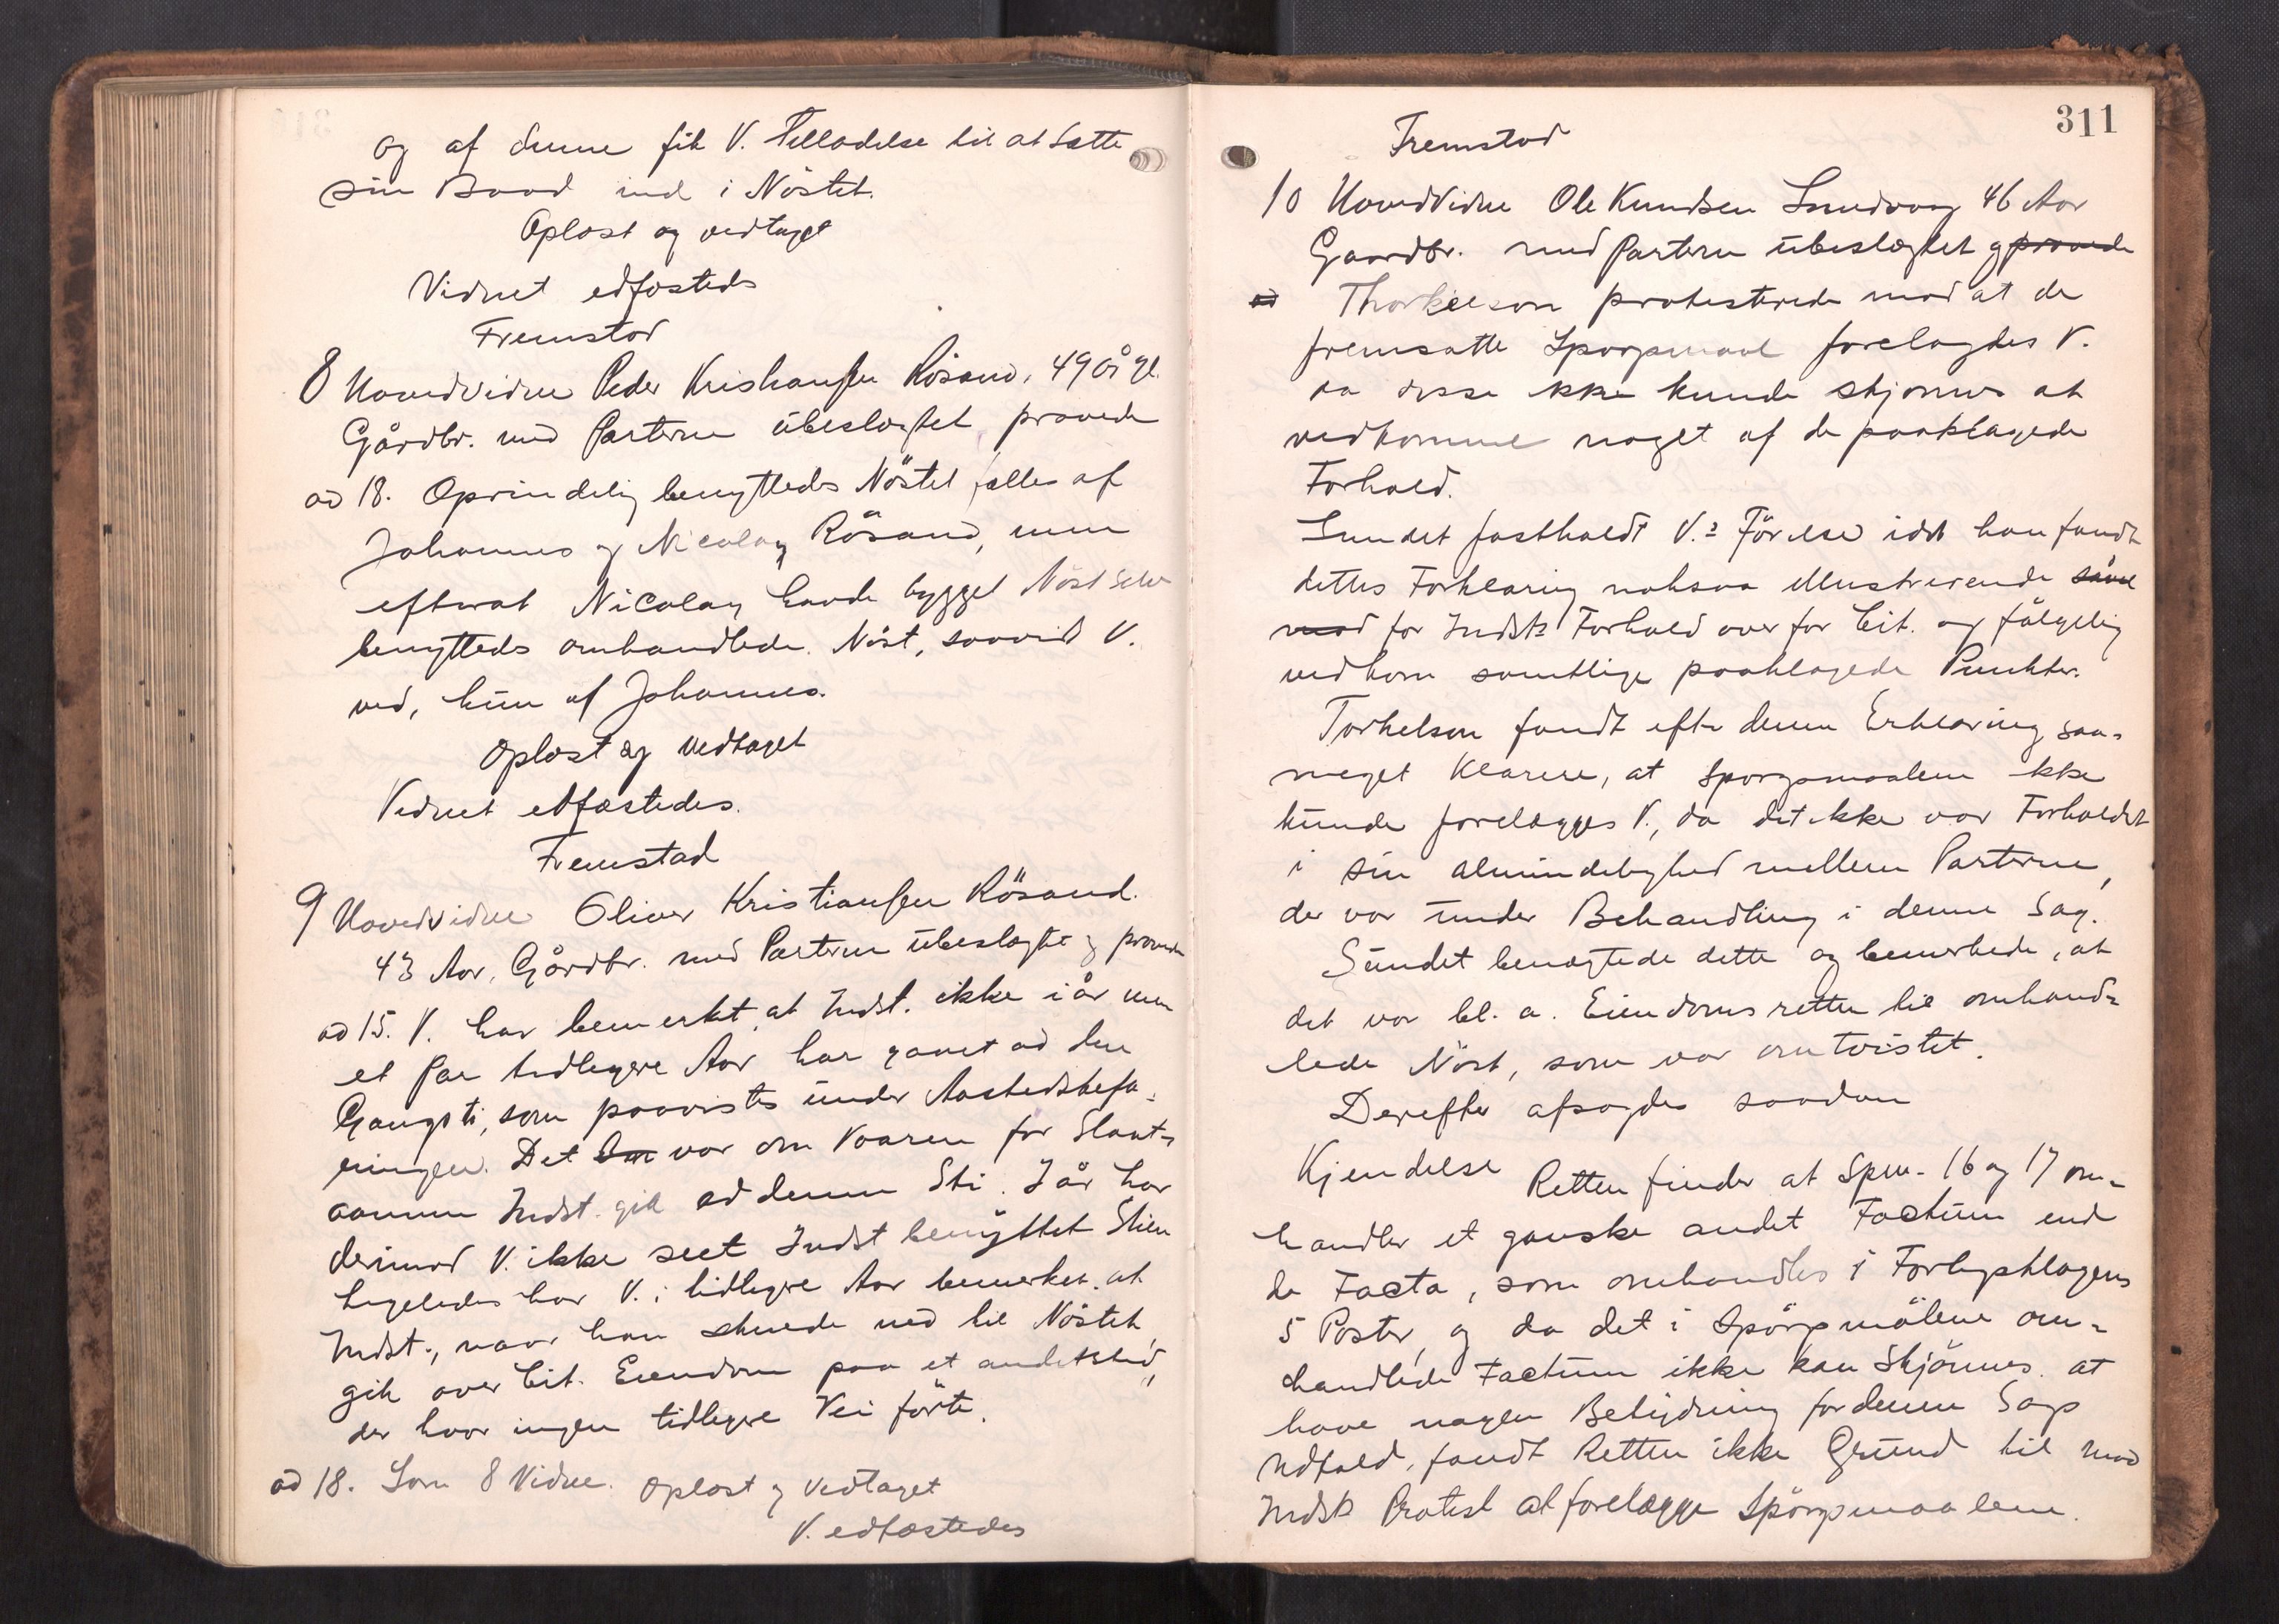 og af denne fik V. Tilladelse til at sætte
sin Baad ind i Nöstet.
Oplæst og vedtaget
Vidnet edfæstedes
Fremstod
8 Hovedvidne Peder Kristiansen Rösand, 49 år gl.
Gårdbr. med Parterne ubeslægtet, provede
ad 18. Oprindelig benyttedes Nöstet fælles af
Johannes og Nicolay Rösand, men
efterat Nicolay havde bygget Nöst selv
benyttedes omhandlede Nöst, saavidt V.
ved, kun af Johannes.
Oplæst og vedtaget
Vidnet edfæstedes.
Fremstod
9 Hovedvidne Oliver Kristiansen Rösand.
43 Aar, Gårdbr. med Parterne ubeslægtet og provede
ad 15. V. har bemerket, at Indst. ikke i år men
et Par tidligere Aar har gaaet ad den
Gangsti, som paavistes under Aastedsbefa-
ringen. Det var om Vaaren før Slaat-
aannen Indst. gik ad denne Sti. I år har
derimod V. ikke seet Indst benyttet Stien
Ligeledes har V. i tidligere Aar bemerket, at
Indst., naar han skulde ned til Nöstet,
gik over Cit. Eiendom paa et andet sted,
der hvor ingen tidligere Vei förte.
ad 18. Som 8 Vidne. Oplæst og vedtaget
V. edfæstedes
311
Fremstod
10 Hovedvidne Ole Knudsen Sundvaag 46 Aar
Gaardbr. med Parterne ubeslægtet og provede
ad Thorkelson protesterede mod at de
fremsatte Spørgsmaal forelagdes V.
da disse ikke kunde skjønnes at
vedkomme noget af de paaklagede
Forhold.
Sundet fastholdt V.s Förelse idet han fandt
dettes Forklaring noksaa illustrerende
for Indsts Forhold overfor Cit. og fölgelig
vedkom samtlige paaklagede Punkter.
Torkelson fandt efter denne Erklæring saa-
meget klarere, at Spørgsmaalene ikke
kunde forelægges V., da det ikke var Forholdet
i sin almindelighed mellem Parterne,
der var under Behandling i denne Sag.
Sundet benægtede dette og bemerkede, at
det var bl. a. Eiendomsretten til omhand-
lede Nöst, som var omtvistet.
Derefter afsagdes saadan
Kjendelse
Retten finder at Spm. 16 og 17 om-
handler et ganske andet Factum end
de Facta, som omhandles i Forligsklagens
5 Poster, og da det i Spörgsmålene om-
handlede Factum ikke kan skjönnes at
have nogen Betydning for denne Sags
Udfald, fandt Retten ikke Grund til mod
Indsts Protest at forelægge Spörgsmaalene.